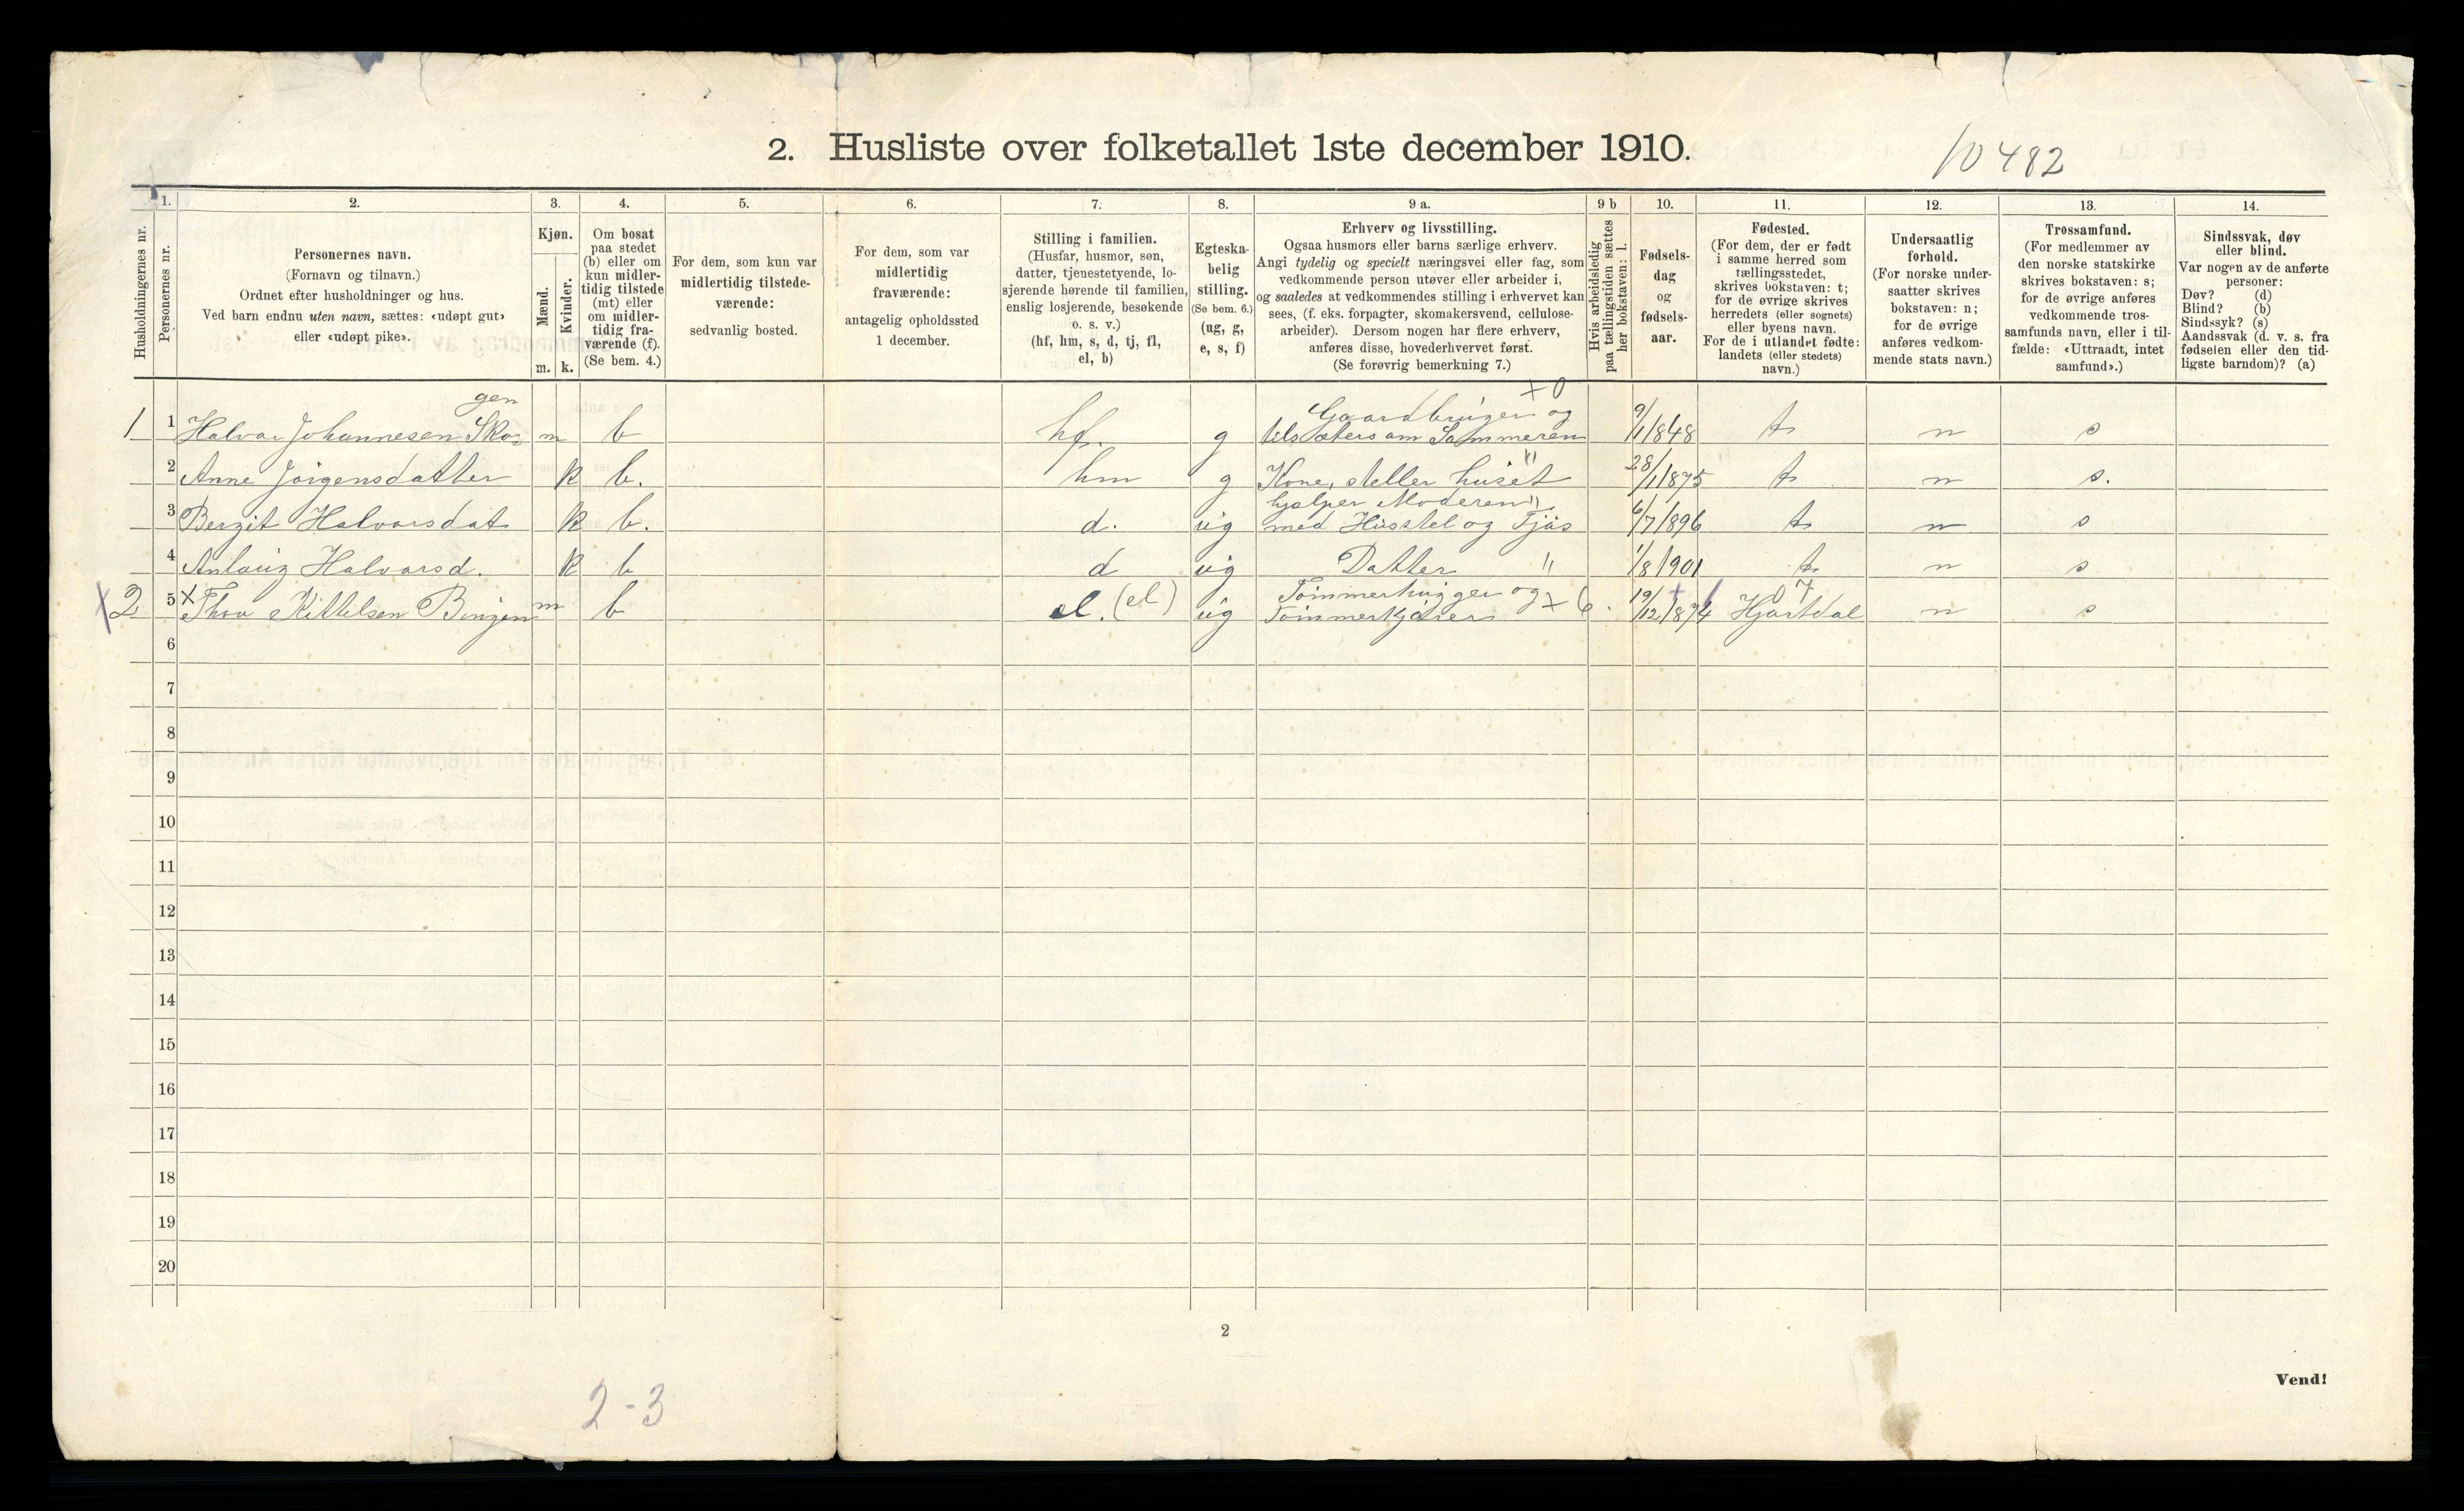 2. Husliste over folketallet 1ste december 1910.
10 482
Husholdningernes nr.
1.
Personernes nr.
2.
Personernes navn.
(Fornavn og tilnavn.)
Ordnet efter husholdninger og hus.
Ved barn endnu uten navn, sættes: «udøpt gut»
eller «udøpt pike».
3.
Kjøn.
Mænd.
Kvinder.
m.
k.
4.
Om bosat
paa stedet
(b) eller om
kun midler-
tidig tilstede
(mt) eller
om midler-
tidig fra-
værende (f).
(Se bem. 4.)
5.
For dem, som kun var
midlertidig tilstede-
værende:
sedvanlig bosted.
6.
For dem, som var
midlertidig
fraværende:
antagelig opholdssted
1 december.
7.
Stilling i familien.
(Husfar, husmor, søn,
datter, tjenestetyende, lo-
sjerende hørende til familien,
enslig losjerende, besøkende
o. s. v.)
(hf, hm, s, d, tj, fl,
el, b)
8.
Egteska-
belig
stilling.
(Se bem. 6.)
(ug, g,
e, s, f)
9 a.
Erhverv og livsstilling.
Ogsaa husmors eller barns særlige erhverv.
Angi tydelig og specielt næringsvei eller fag, som
vedkommende person utøver eller arbeider i,
og saaledes at vedkommendes stilling i erhvervet kan
sees, (f. eks. forpagter, skomakersvend, cellulose-
arbeider). Dersom nogen har flere erhverv,
anføres disse, hovederhvervet først.
(Se forøvrig bemerkning 7.)
9 b
Hvis arbeidsledig
paa tællingstiden sættes
her bokstaven: l.
10.
Fødsels-
dag
og
fødsels-
aar.
11.
Fødested.
(For dem, der er født
i samme herred som
tællingsstedet,
skrives bokstaven: t;
for de øvrige skrives
herredets (eller sognets)
eller byens navn.
For de i utlandet fødte:
landets (eller stedets)
navn.)
12.
Undersaatlig
forhold.
(For norske under-
saatter skrives
bokstaven: n;
for de øvrige
anføres vedkom-
mende stats navn.)
13.
Trossamfund.
(For medlemmer av
den norske statskirke
skrives bokstaven: s;
for de øvrige anføres
vedkommende tros-
samfunds navn, eller i til-
fælde: «Uttraadt, intet
samfund».)
14.
Sindssvak, døv
eller blind.
Var nogen av de anførte
personer:
Døv? (d)
Blind? (b)
Sindssyk? (s)
Aandssvak (d. v. s. fra
fødselen eller den tid-
ligste barndom)? (a)
gen x 0
Gaardbruger og
1 1 Halvar Johannesen Sko= m b hf. g tilsæters om Sommeren 9/1 1848 t n s
2 Anne Jörgensdatter k b. hm g Kone, steller huset " 28/1 1875 t n s.
hjælper Moderen "
3 Bergit Halvorsdat k b. d. ug med Husstel og Fjös 6/7 1896 t n s
4 Anlaug Halvorsd. k b d ug Datter " 1/8 1901 t n s
Tömmerhugger og 07
x 2 5 x Thov Kittelsen Bingen m b el. (el) ug Tömmerkjörer x 6. 19/12 1874 Hjartdal n s
6
7
8
9
10
11
12
13
14
15
16
17
18
19
20
2
Vend!
2-3